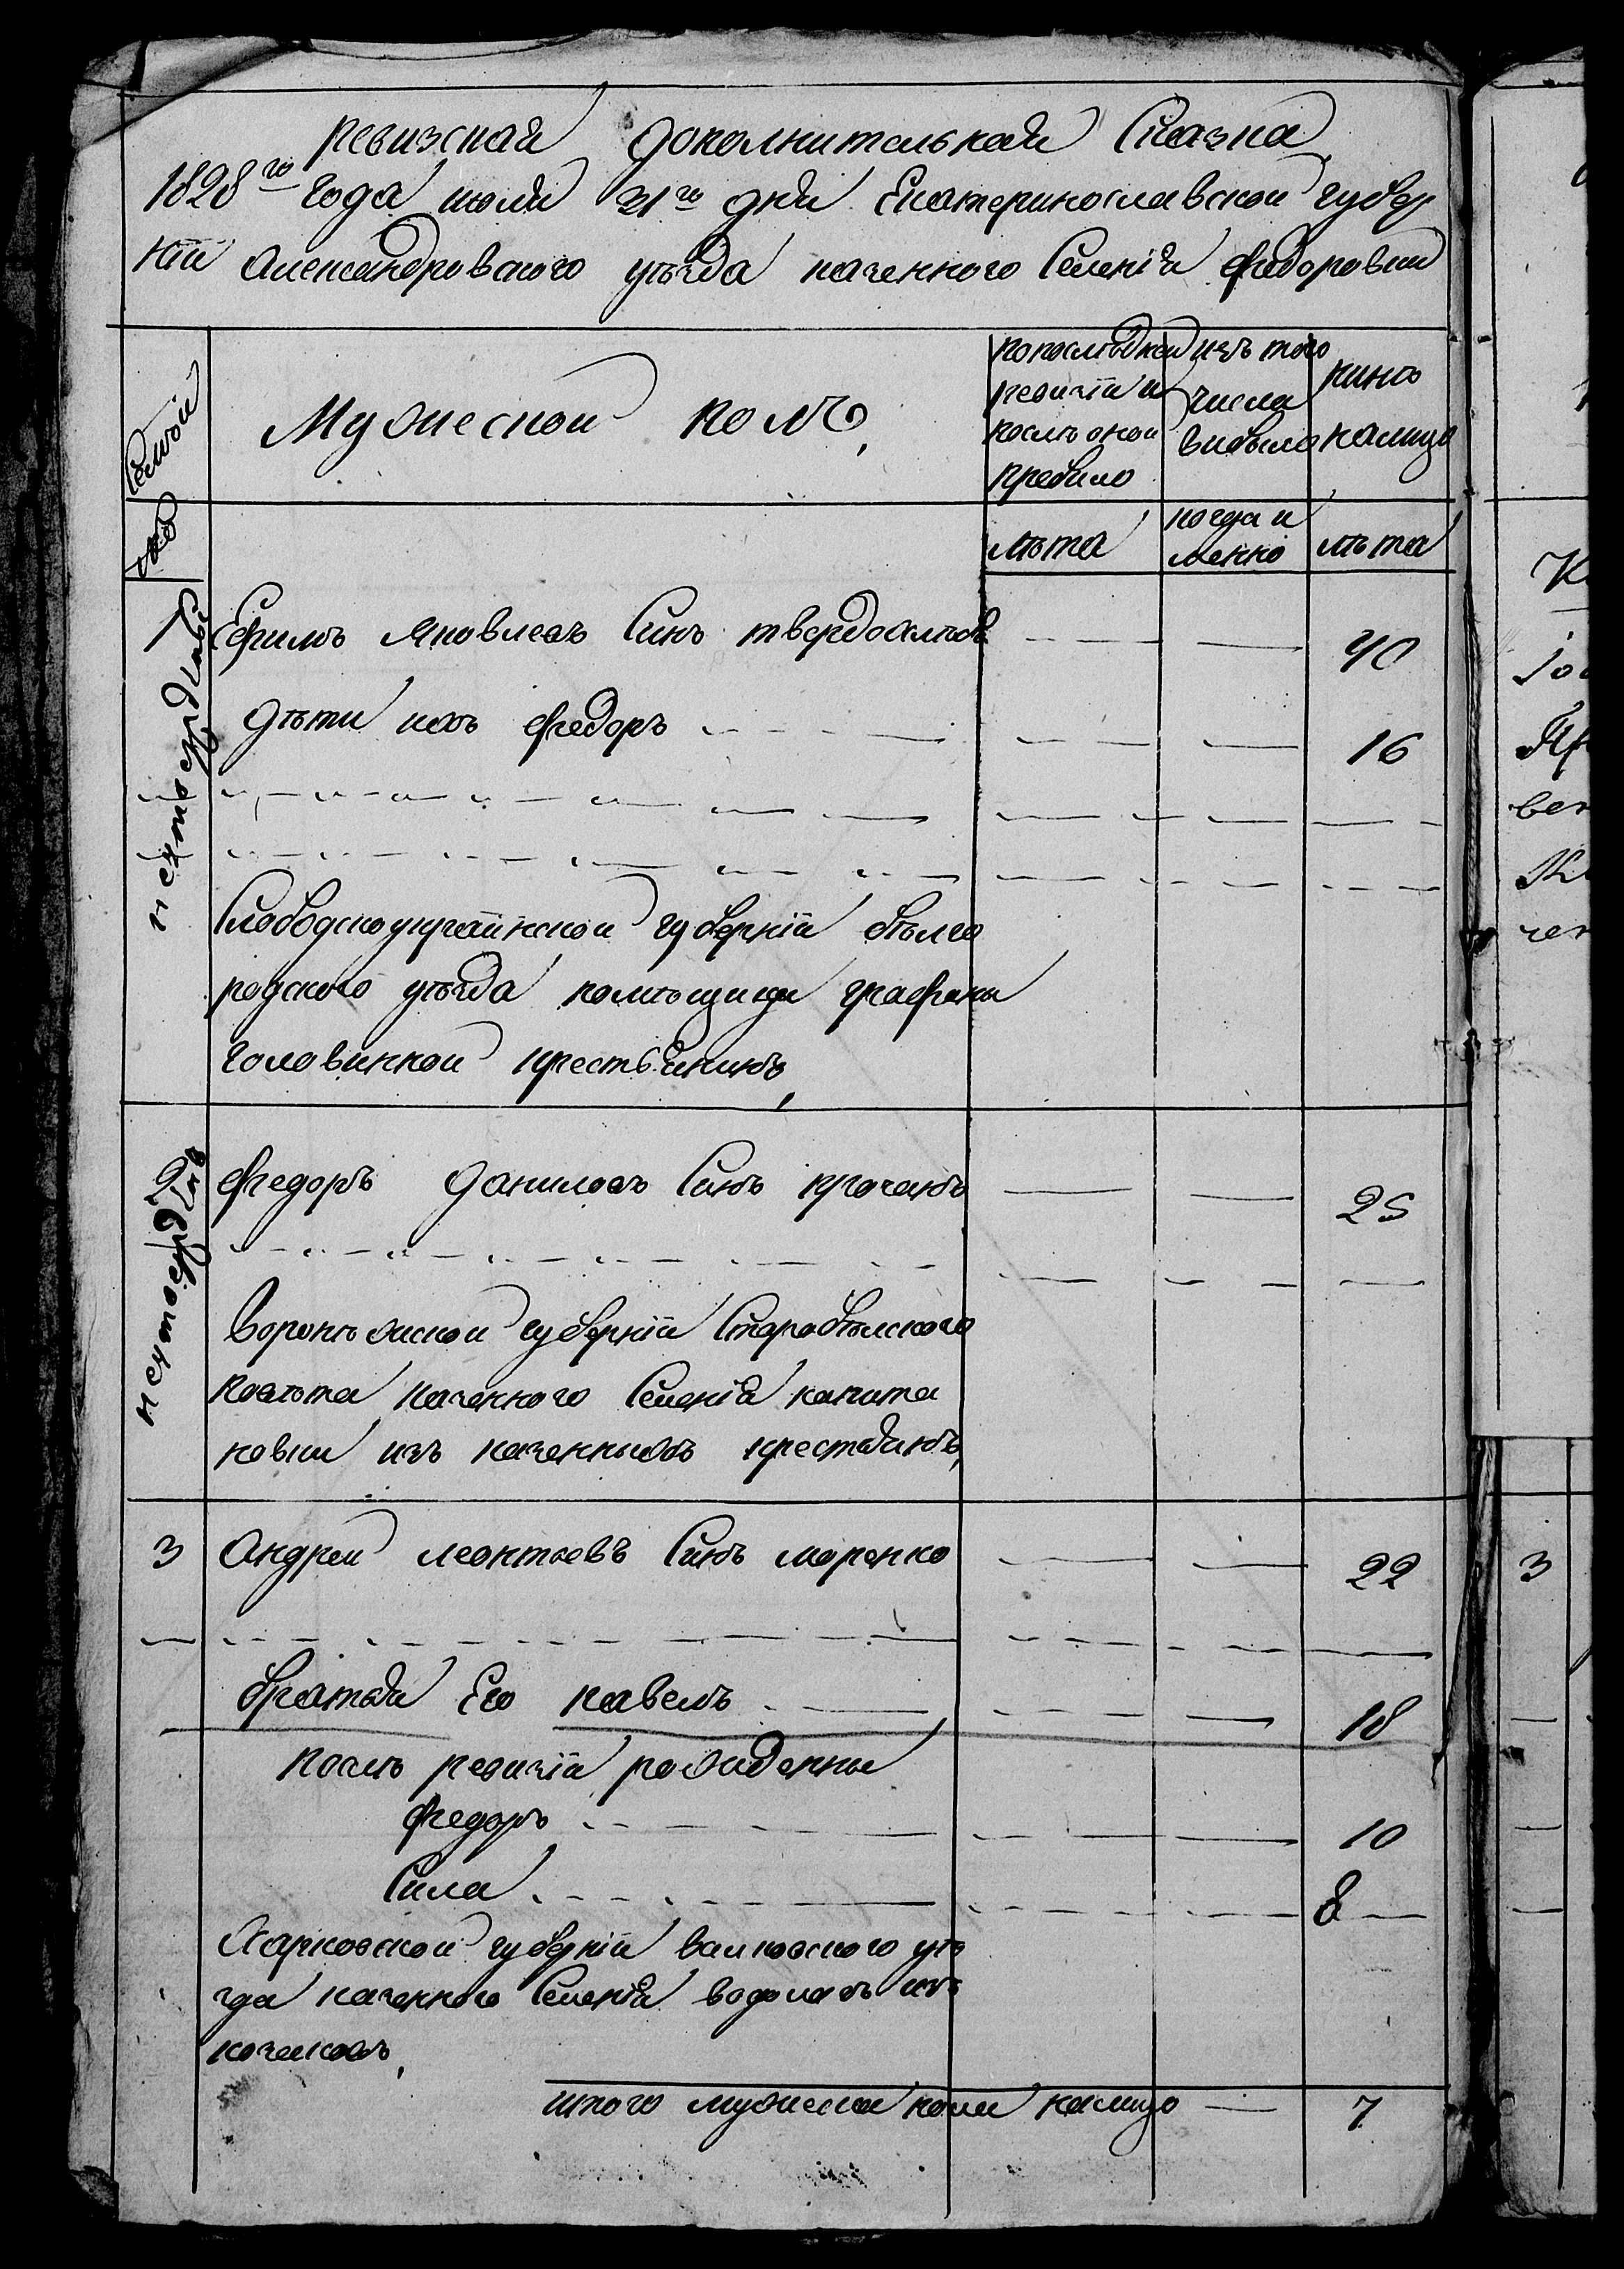 ревизская дополнительная Сказка
1828го года июля 31го дня Екатеринославской губер
нїи Александровского уѣзда казенного Селенїя Федоровки
Семьи
Мужеской полъ,
по последней
ревизїи и
после оной
прибило
изъ того
числа
вибыло
нинѣ
налицо
лѣта
когда и
менно
лѣта
1
Ефимъ Яковлевъ Синъ твердохлѣбъ
40
дѣти ихъ Федоръ
16
Слободскоукраинской губернїи бѣлго
родского уѣзда помѣщици графини
головинной крестьянинъ,
2
Федоръ даниловъ Синъ
25
Воронѣжской губернїи Старобѣлского
повѣта казенного Селенїя капита
новки изъ казеннихъ крестьянъ,
3
андрей леонтьевъ Синъ моренко
22
братья Его павелъ
18
послѣ ревизїи рожденны
Федоръ
10
Сила
8
Харковской губернїи валковского уѣ
зда казенного Селенїя водолагъ изъ
козаковъ,
итого мужеска пола налицо
7
3